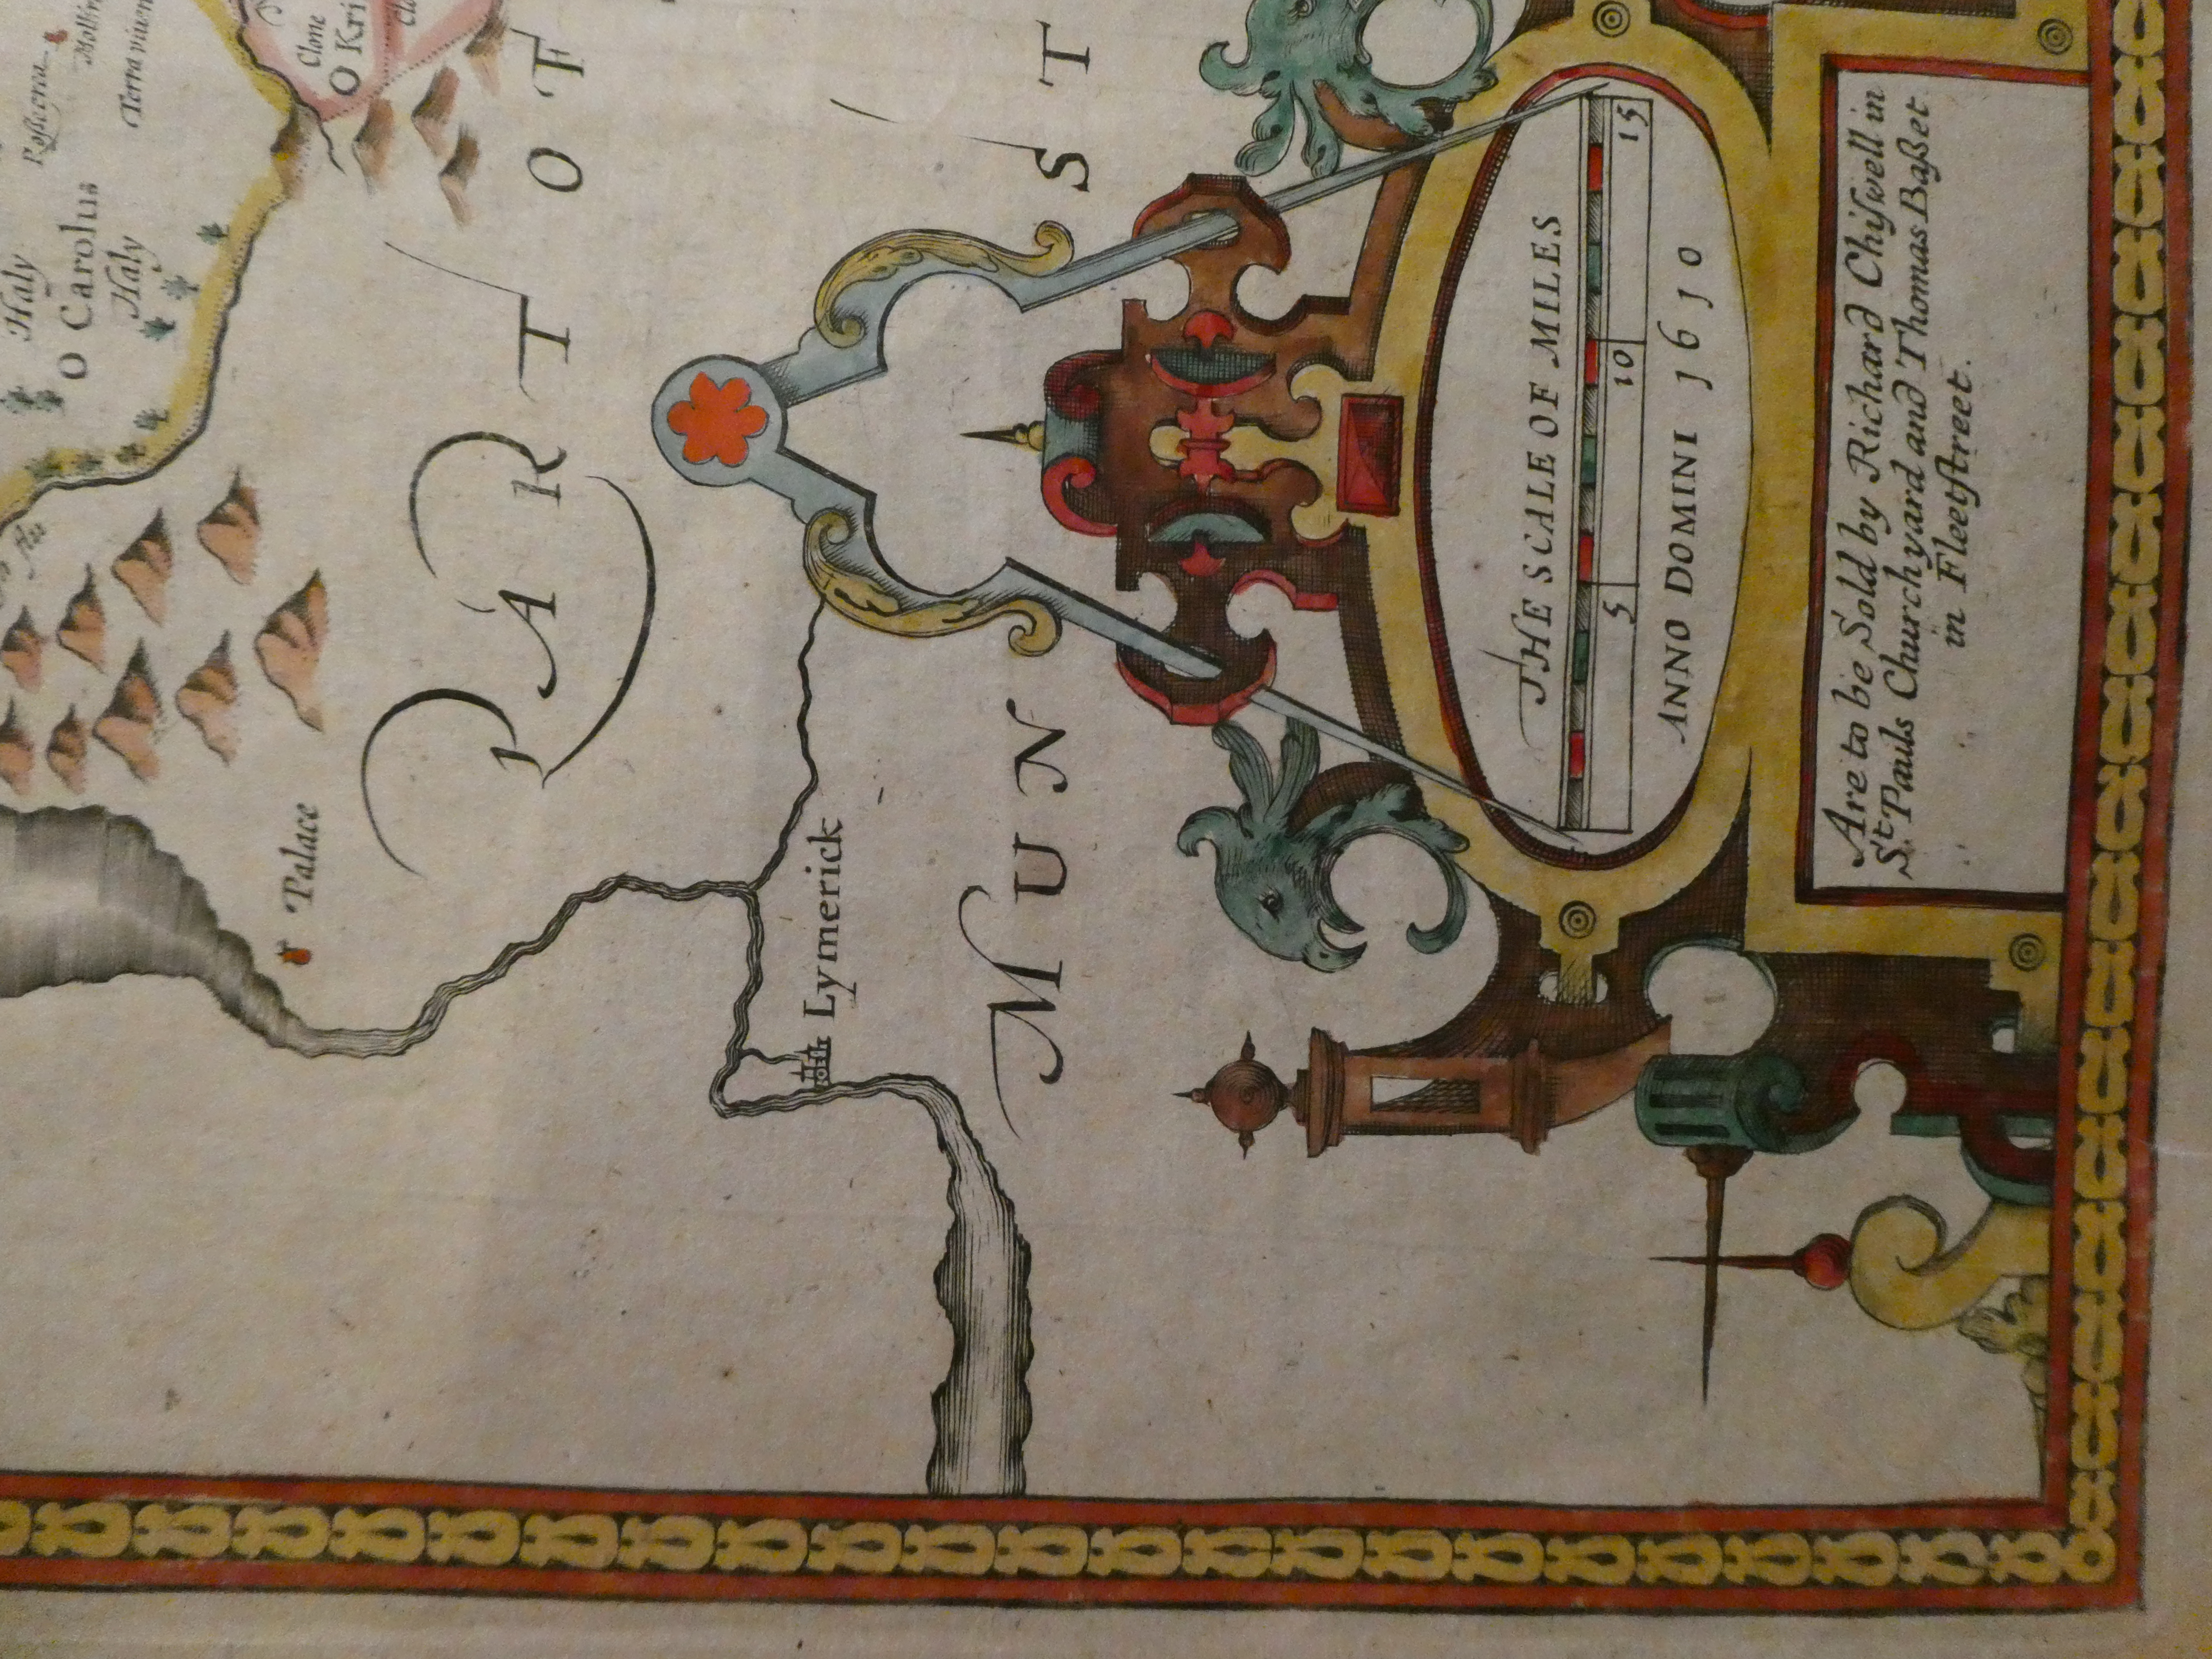 Haly
O Carolus
Haly
Terra
Clone
O Kri
Palace
PART OF
Lymerick
MUNST
THE SCALE OF MILES
5 10 15
ANNO DOMINI 1610
Are to be Sold by Richard Chiſwell in
St Pauls Churchyard and Thomas Baßet
in Fleetſtreet.